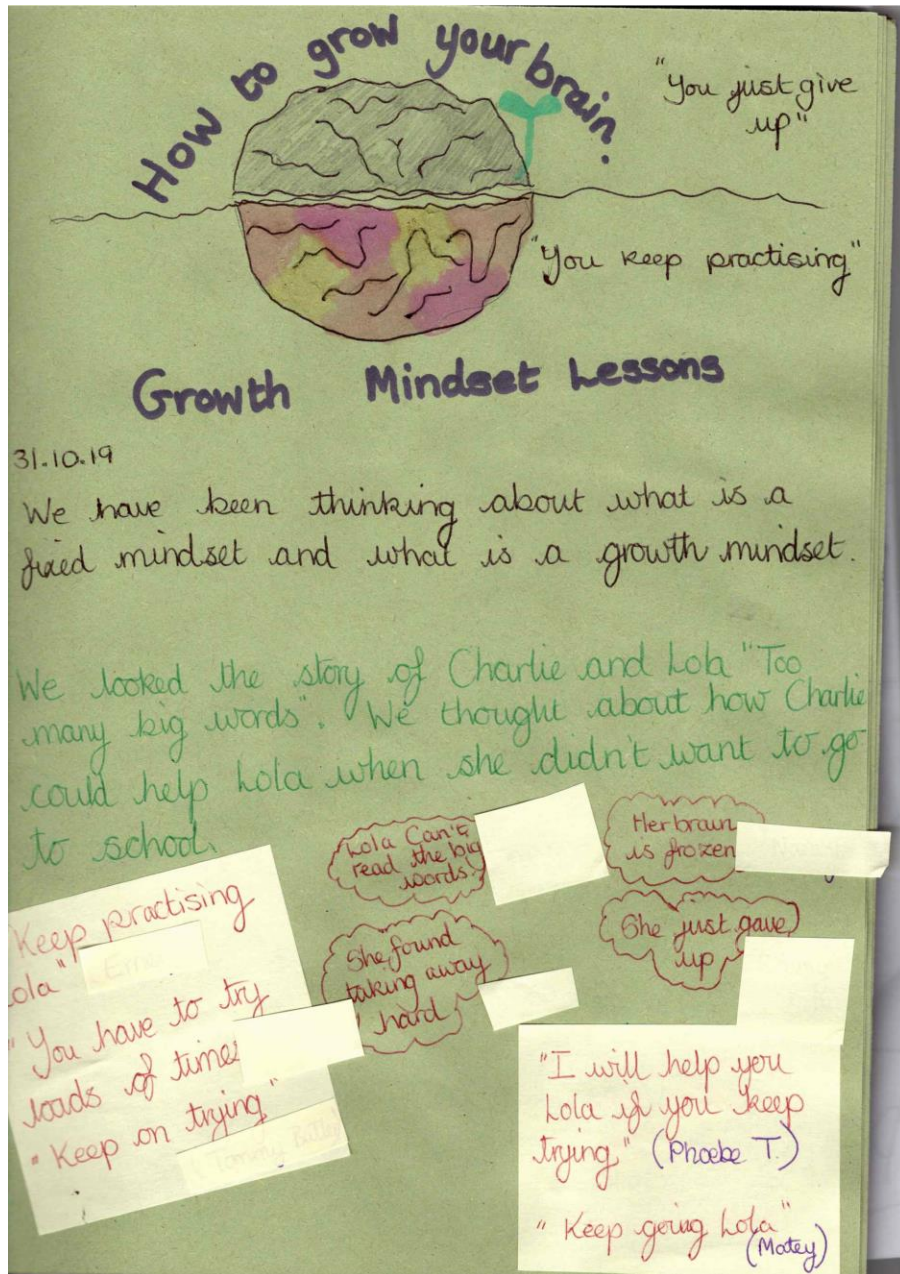 How to grow your brain.
"You just give
up"
"You keep practising"
Growth Mindset Lessons
31.10.19
We have been thinking about what is a
fixed mindset and what is a growth mindset.
We looked the story of Charlie and Lola "Too
many big words". We thought about how Charlie
could help Lola when she didn't want to go
to school.
Lola Can't
read the big
words!
Her brain
is frozen
She found
taking away
hard
She just gave
up
Keep practising
ola"
"You have to try
loads of times
"Keep on trying"
"I will help you
Lola if you keep
trying" (Phoebe T.)
"Keep going Lola"
(Matey)